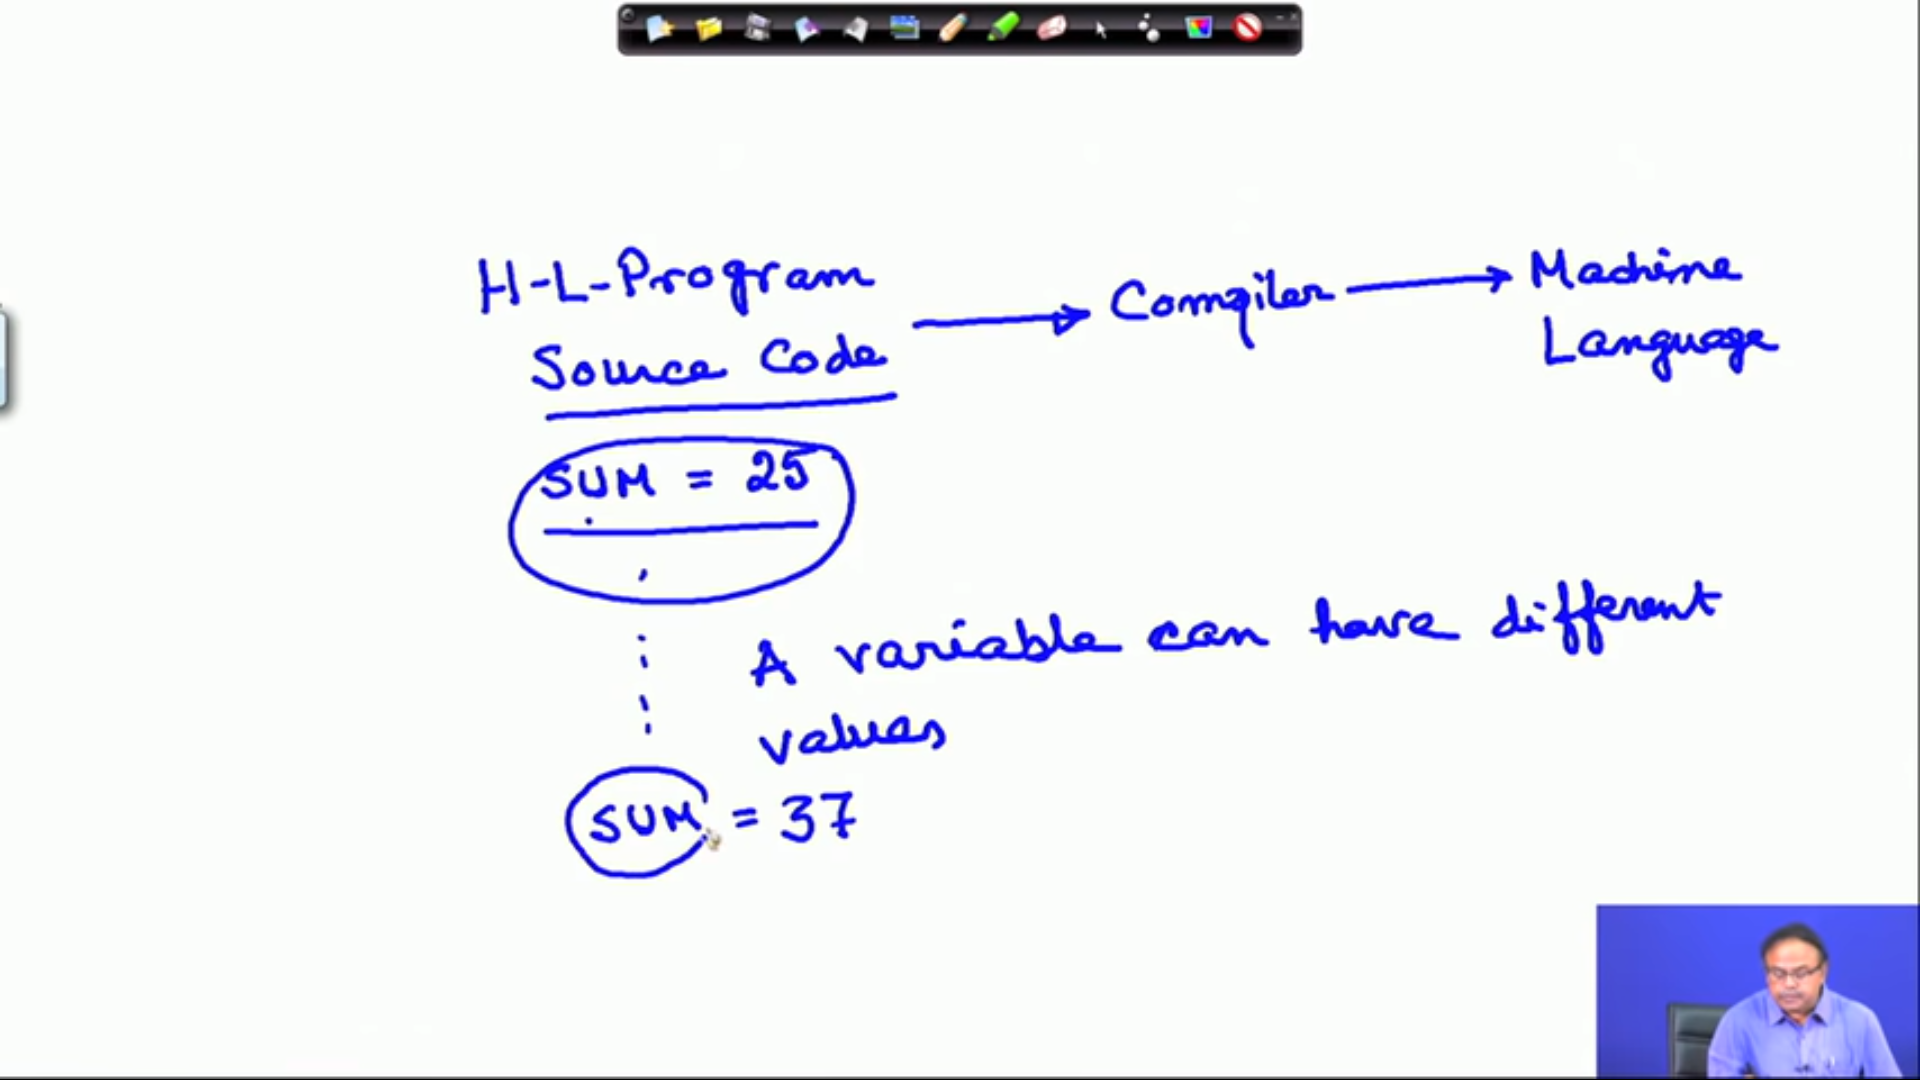 H-L-Program
Source Code
Compiler
Machine
Language
SUM = 25
A variable can have different
values
SUM = 37